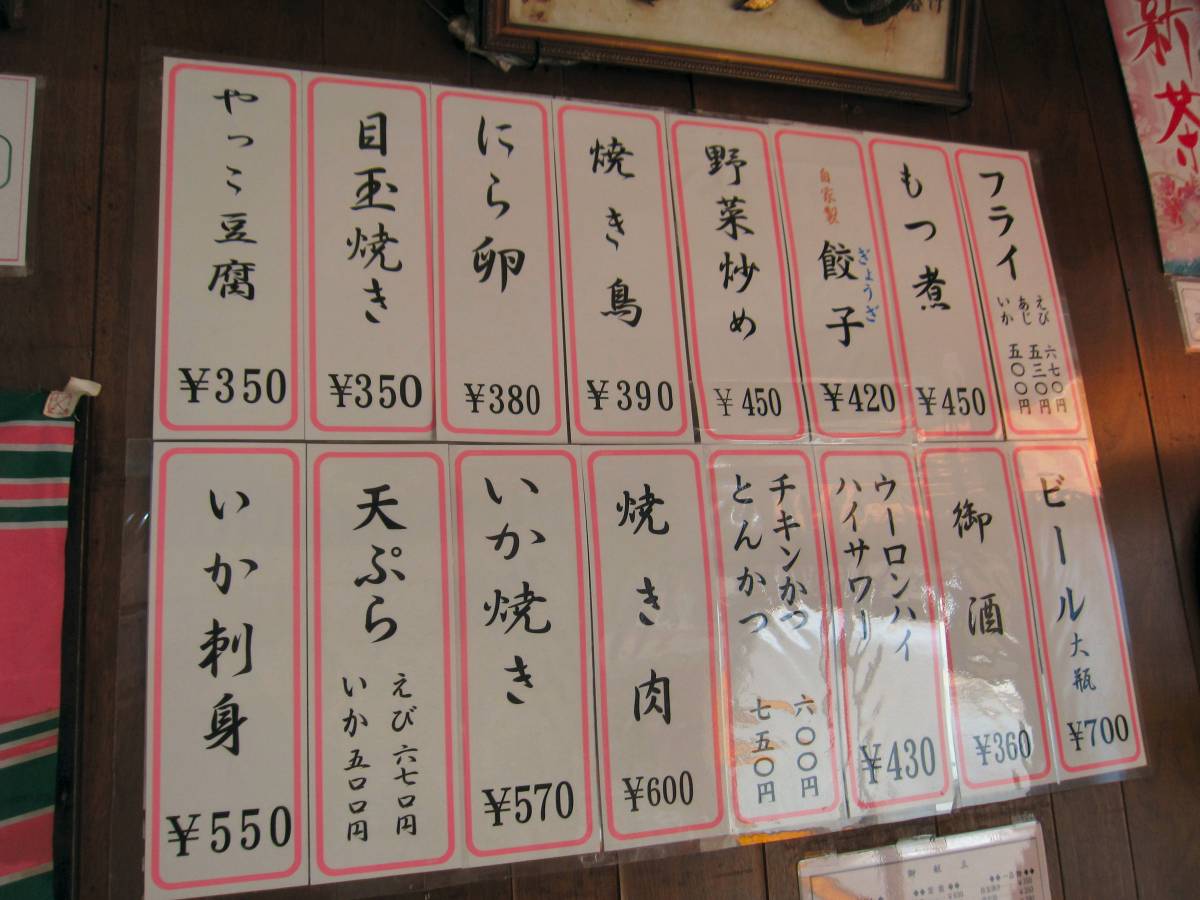 新茶
フライ
えび 六七〇円
あじ 五三〇円
いか 五〇〇円
もつ煮
¥450
自家製
餃子
ぎょうざ
¥420
野菜炒め
¥450
焼き鳥
¥390
にら卵
¥380
目玉焼き
¥350
やっこ豆腐
¥350
ビール大瓶
¥700
御酒
¥360
ウーロンハイ
ハイサワー
¥430
チキンかつ 六〇〇円
とんかつ 七五〇円
焼き肉
¥600
いか焼き
¥570
天ぷら
えび 六七〇円
いか 五〇〇円
いか刺身
¥550